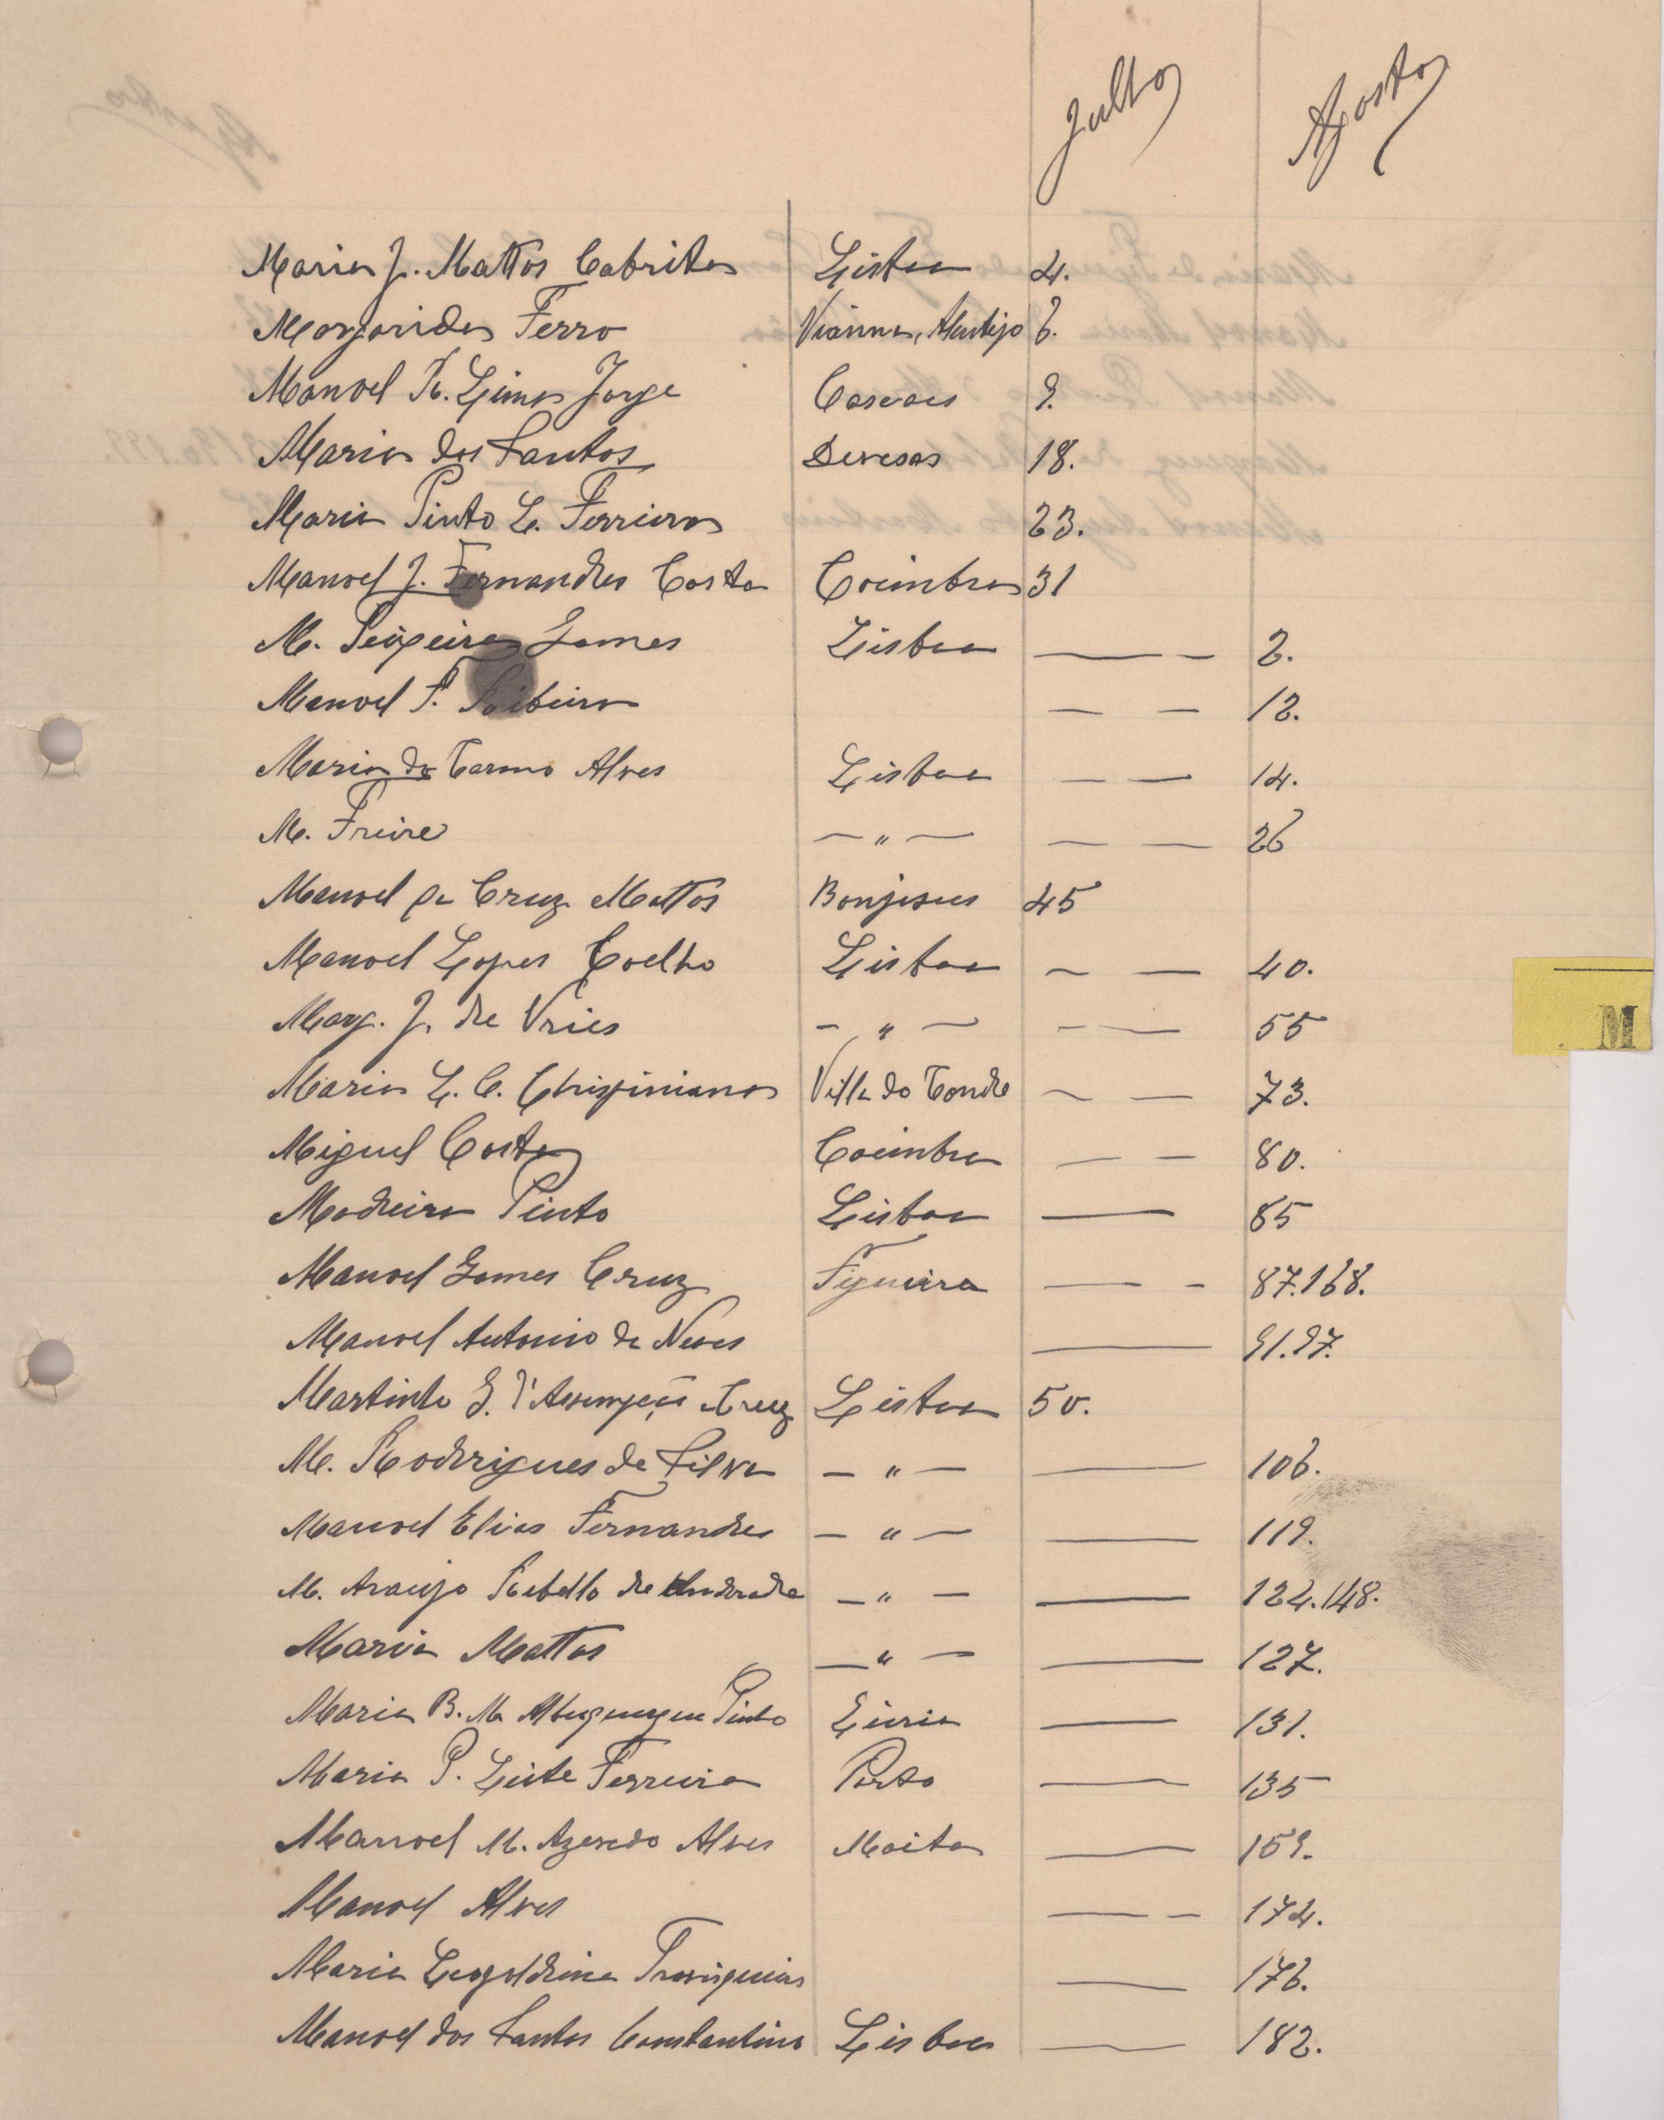 Julho Agosto
Maria J. Mattos Cabrita Lisboa 4.
Margarida Ferro Vianna, Alentejo 6.
Manoel R. Lima Jorge Cascaes 9.
Maria dos Santos Devesas 18.
Maria Pinto L. Ferreira 23.
Manoel J. Fernandes Costa Coimbra 31
M. Teixeira Gomes Lisboa — - 2.
Manoel P. Ribeiro — — 12.
Maria do Carmo Alves Lisboa — — 14.
M. Freire — " — — — 26
Manoel da Cruz Mattos Bonjesus 45
Manoel Lopes Coelho Lisboa — — 40.
Marg. J. de Vries — " — — — 55
Maria L. C. Chrispiniano Villa do Conde — — 73.
Miguel Costa Coimbra — — 80.
Madeira Pinto Lisboa — 85
Manoel Gomes Cruz Figueira — - 87.168.
Manoel Antonio da Neves — 91.97.
Martinho G. d'Assumpção Cruz Lisboa 50.
M. Rodrigues da Silva — " — — 106.
Manoel Elias Fernandes — " — — 119.
M. Araujo Rebello de Andrade — " — — 124.148.
Maria Mattos — " — — 127.
Maria B. M. Albuquerque Pinto Leiria — 131.
Maria P. Leite Ferreira Porto — 135
Manoel M. Azevedo Alves Moita — 159.
Manoel Alves — - 174.
Maria Leopoldina — 176.
Manoel dos Santos Constantino Lisboa — 182.
M